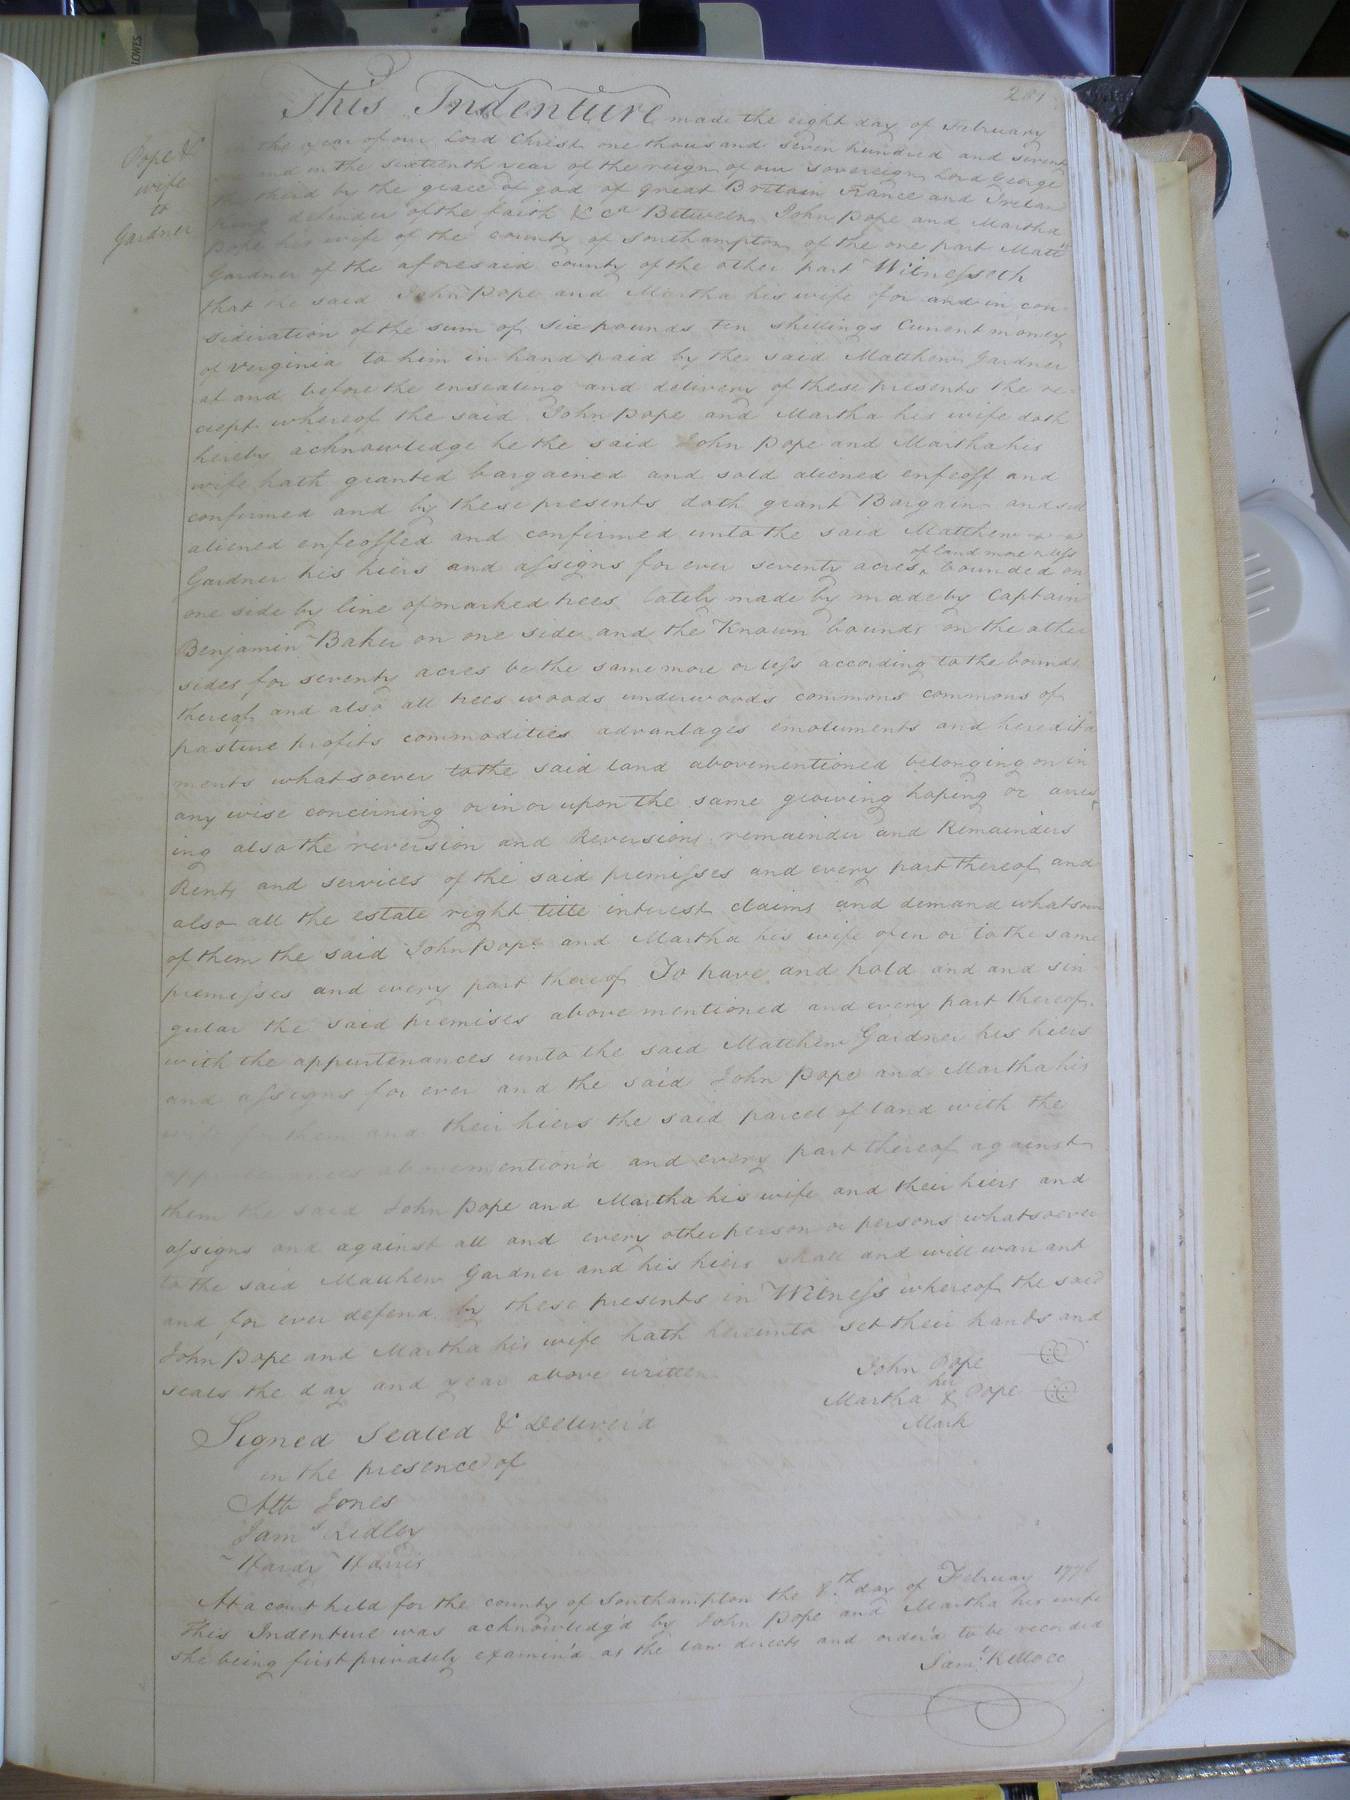 LOWES
281
Pope &
wife
to
Gardner
This Indenture made the eight day of February
in the year of our Lord Christ one thousand seven hundred and seventy
and in the sixteenth year of the reign of our sovereign Lord George
the third by the grace of god of great Britain France and Ireland
king defender of the faith & ca Between John Pope and Martha
Pope his wife of the county of Southampton of the one part Matt
Gardner of the aforesaid county of the other part Witnesseth
that he said John Pope and Martha his wife for and in con
sideration of the sum of six pounds ten shillings Current money
of Verginia to him in hand paid by the said Matthew Gardner
at and before the ensealing and delivery of these presents the re
ciept whereof the said John Pope and Martha his wife doth
hereby acknowledge he the said John Pope and Martha his
wife hath granted bargained and sold aliened enfeoff and
confirmed and by these presents doth grant Bargain and sell
aliened enfeoffed and confirmed unto the said Matthew
of land more or less
Gardner his hiers and assigns for ever seventy acres bounded on
one side by line of marked trees lately made by made by Captain
Benjamin Baker on one side and the Known bounds on the other
sides for seventy acres be the same more or less according to the bounds
thereof and also all trees woods underwoods commons commons of
pasture profits commodities advantages emoluments and heredita
ments whatsoever to the said land abovementioned belonging or in
any wise concerning or in or upon the same growing hoping or aris
ing also the reversion and Reversions remainder and Remainders
Rents and services of the said premisses and every part thereof and
also all the estate right title interest claims and demand whatsoever
of them the said John Pope and Martha his wife of in or to the same
premisses and every part thereof To have and hold and and sin
gular the said premises above mentioned and every part thereof
with the appurtenances unto the said Matthew Gardner his hiers
and assigns for ever and the said John Pope and Martha his
wife for them and their hiers the said parcel of land with the
appurtenances abovemention'd and every part thereof against
them the said John Pope and Martha his wife and their hiers and
assigns and against all and every other person or persons whatsoever
to the said Matthew Gardner and his hiers shall and will warrant
and for ever defend by these presents in Witness whereof the said
John Pope and Martha his wife hath hereunto set their hands and
seals the day and year above written
John Pope
her
Martha X Pope
Mark
Signed Sealed & Deliver'd
in the presence of
Jones
Jams Ridley
Hardy Harris
At a court held for the county of Southampton the 8th day of February 1776
This Indenture was acknowledg'd by John Pope and Martha his wife
she being first privately examin'd as the law directs and order'd to be recorded
Saml Kello cc